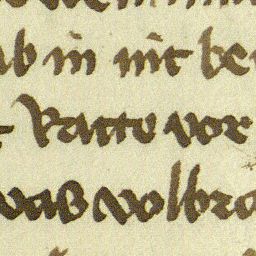 ab in nit be
ratte vor
was volbra